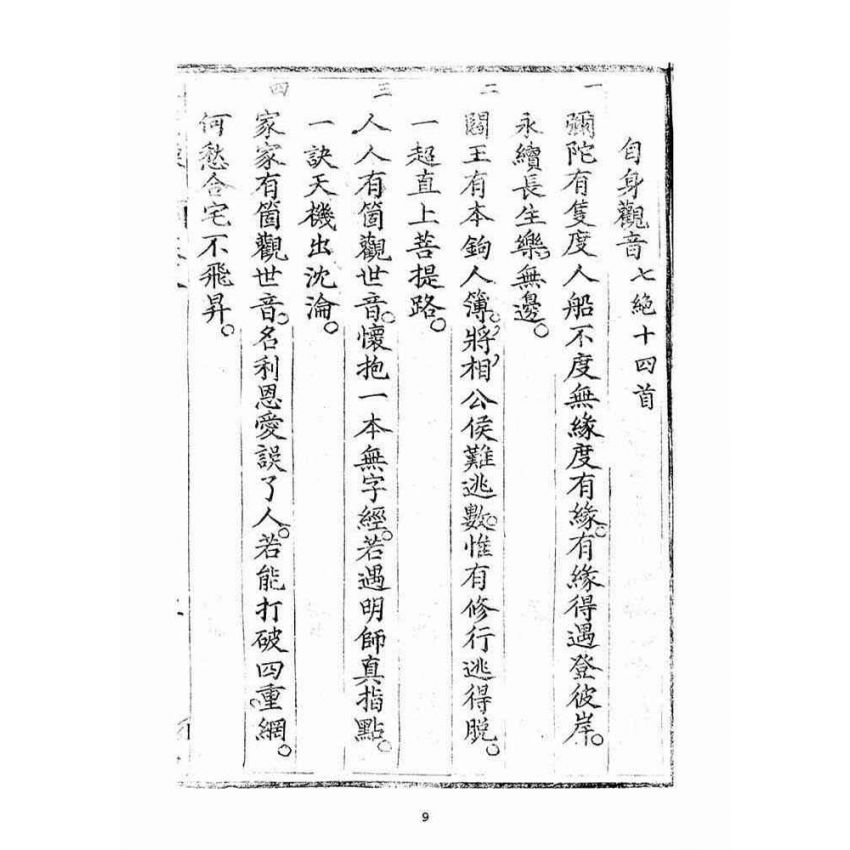 自身觀音七絶十四首
一
彌陀有隻度人船不度無緣度有緣。有緣得遇登彼岸。
永續長生樂，無邊。
二
閻王有本鉤人簿。將，相，公侯難逃數。惟有修行逃得脫。
一超直上菩提路。
三
人人有箇觀世音。懷抱一本無字經。若遇明師真指點。
一訣天機出沈淪。
四
家家有箇觀世音。名利恩愛誤了人。若能打破四重網。
何愁合宅不飛昇。
9